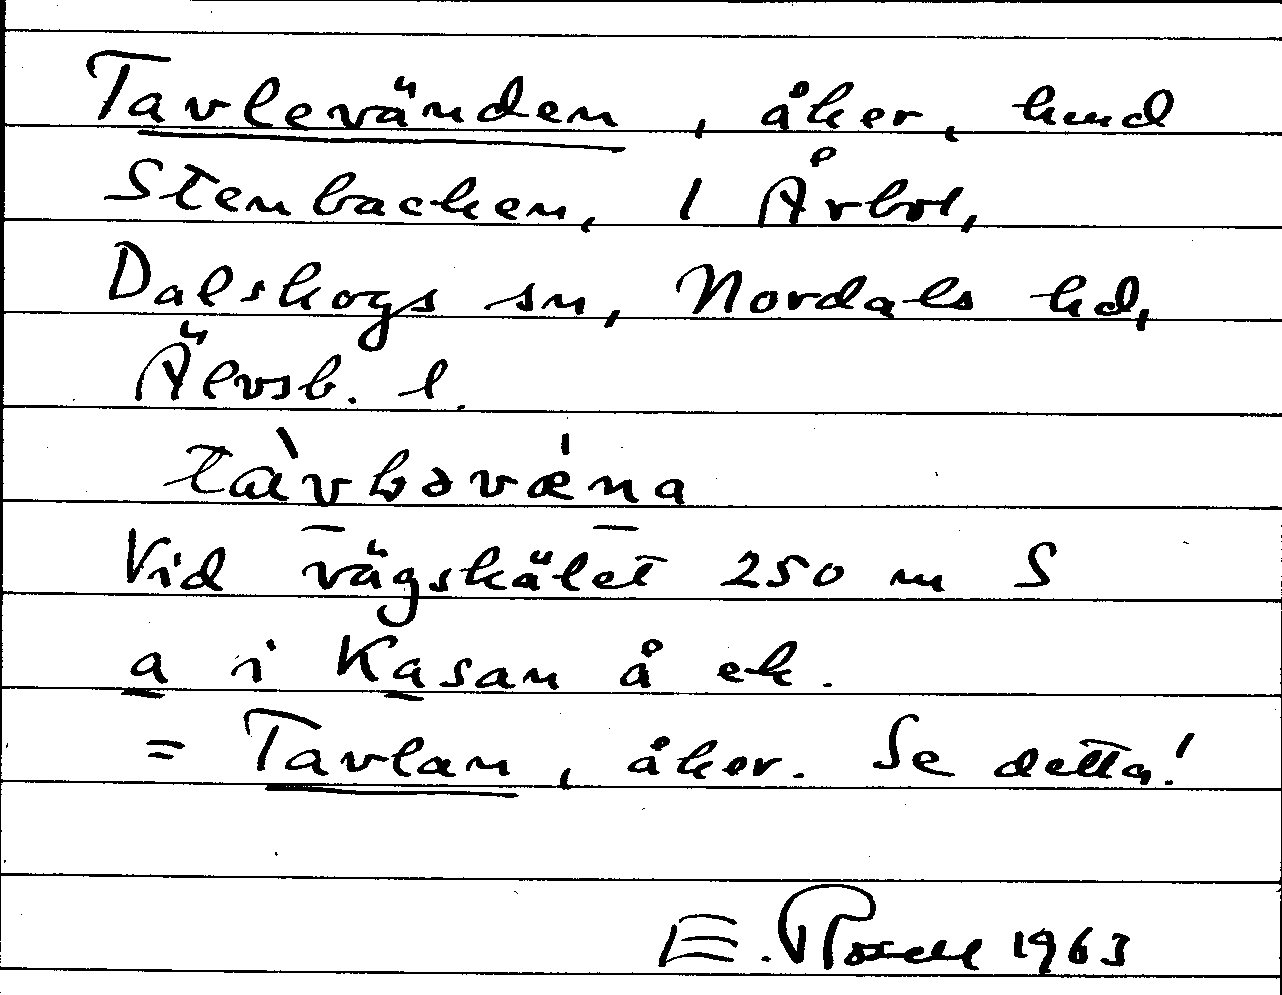 Tavlevänden, åker, hmd
Stenbacken, 1 Årbol,
Dalskogs sn, Nordals hd,
Älvsb. l.
Vid vägskälet 250 m S
a i Kasan å ek.
= Tavlan, åker. Se detta!
E. Rosell 1963